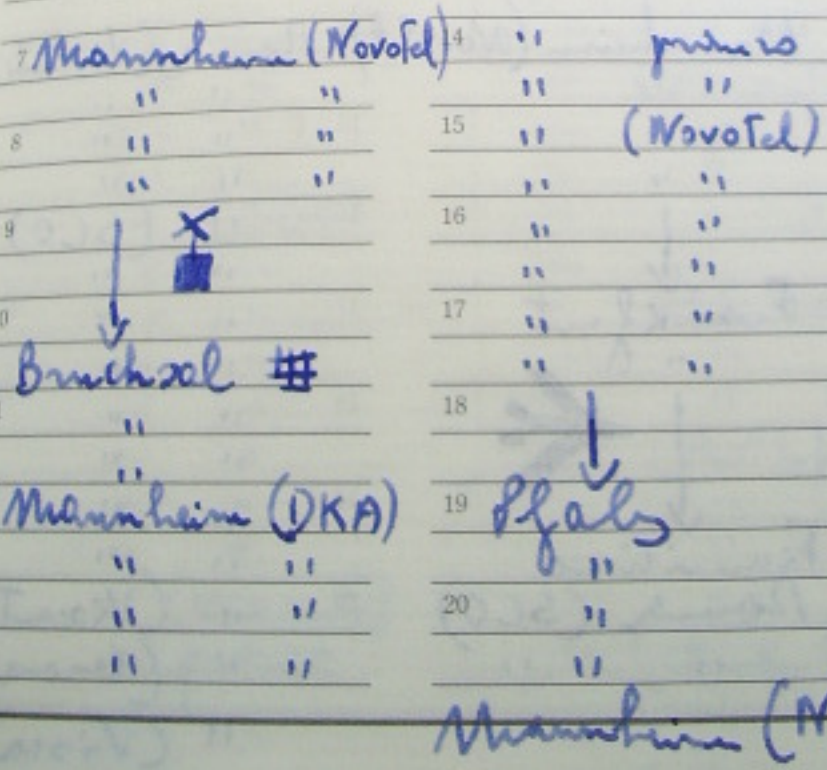 7 Mannheim (Novotel)
" "
8 " "
" "
9
Bruchsal #
"
"
Mannheim (DKA)
" "
" "
" "
4 "
" "
15 " (Novotel)
" "
16 " "
" "
17 " "
" "
18
19 Pfalz
"
20 "
"
Mannheim (N